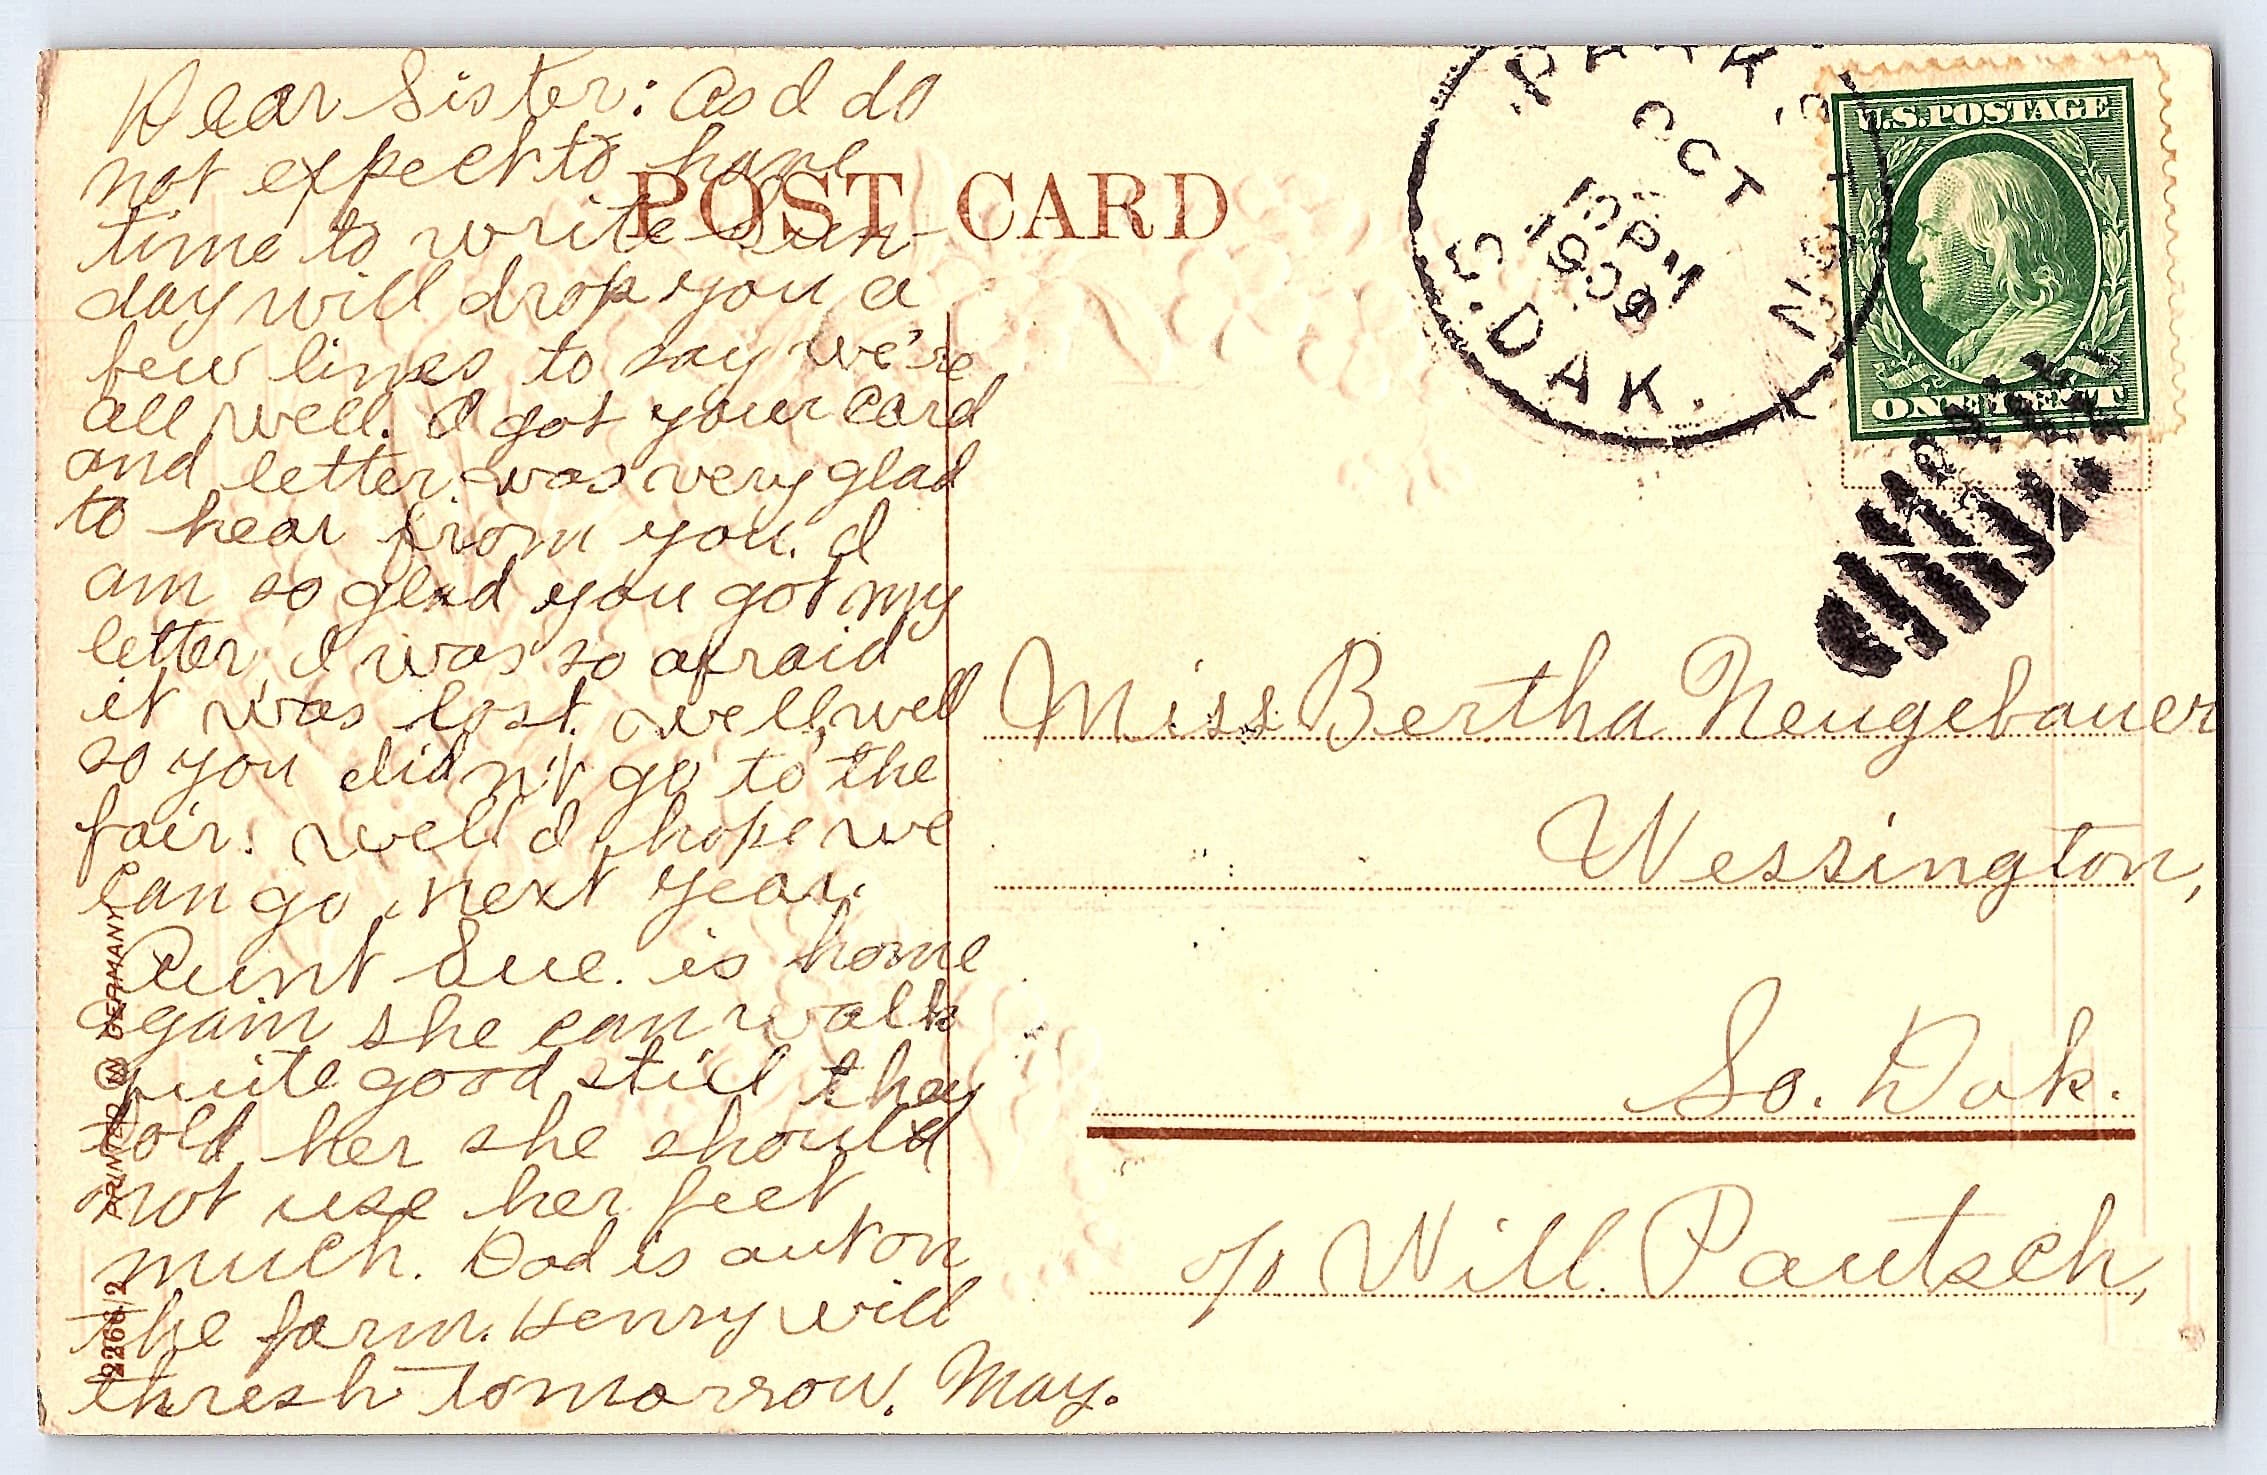 Dear Sister: As I do
not expect to have
time to write Sun-
day will drop you a
few lines to say we're
all well. I got your card
and letter. was very glad
to hear from you. I
am so glad you got my
letter, I was so afraid
it was lost. well, well
so you didn't go to the
fair. well I hope we
can go next year.
Aunt Sue. is home
again she can walk
quite good still they
told her she should
not use her feet
much. Dad is out on
the farm. Henry will
thresh tomorrow. May.
PRINTED IN GERMANY
2266/2
POST CARD
OCT
PM
1909
S. DAK.
U.S. POSTAGE
ONE CENT
Miss Bertha Neugebauer
Wessington,
So. Dak.
c/o Will. Pautsch,